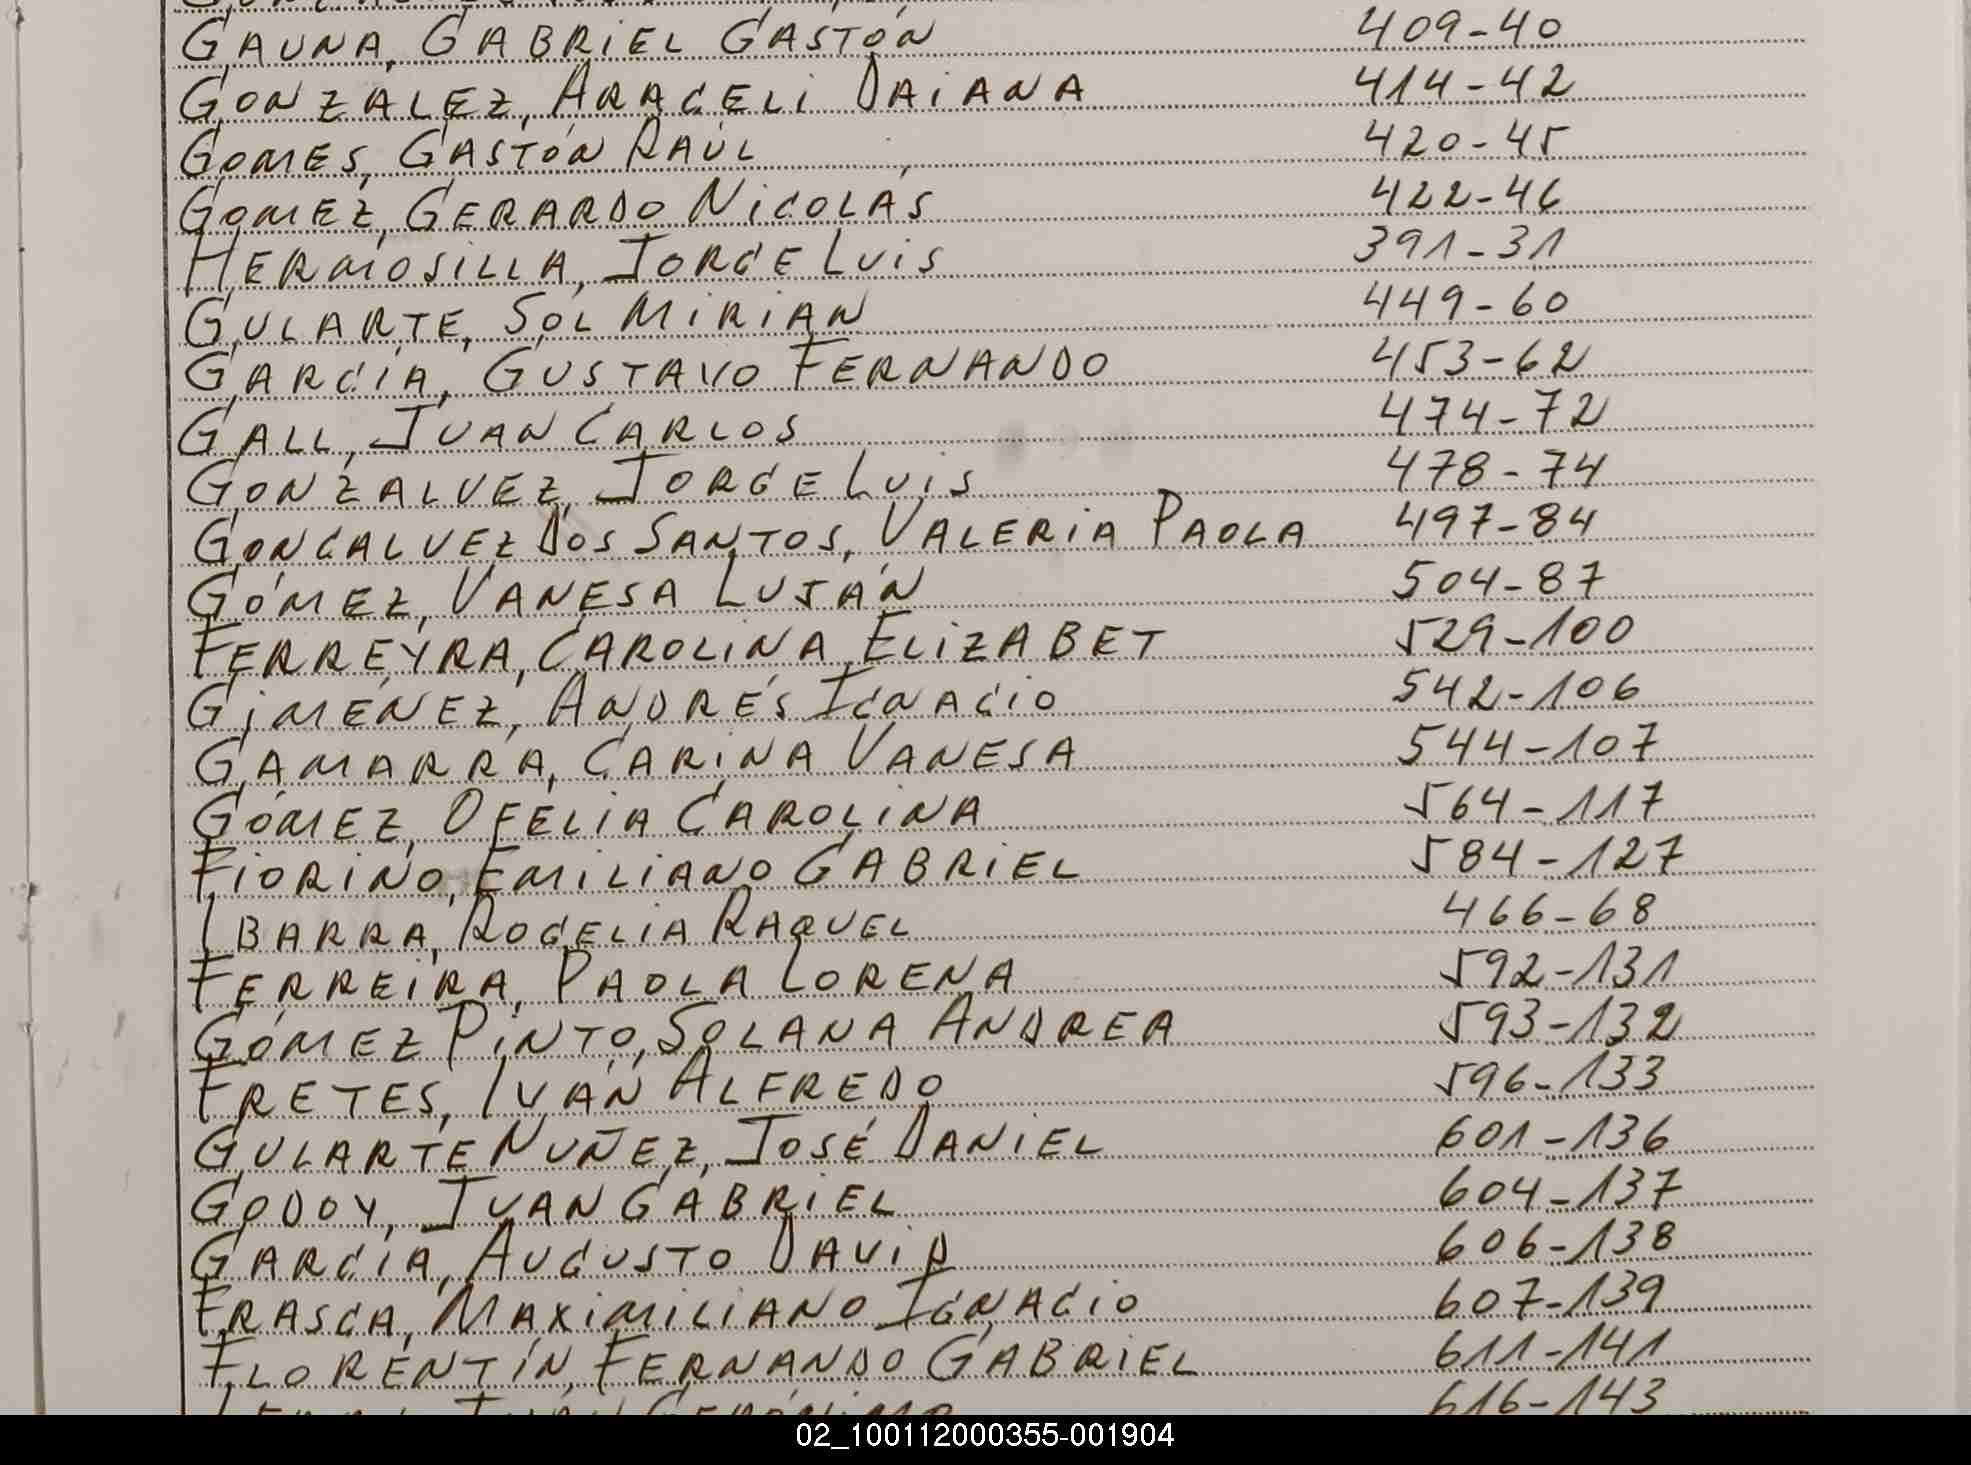 GAUNA, GABRIEL GASTÓN 409-40
GONZALEZ, ARACELI DAIANA 414-42
GOMES, GASTÓN RAÚL 420-45
GOMEZ, GERARDO NICOLÁS 422-46
HERMOSILLA, JORGE LUIS 391-31
GULARTE, SOL MIRIAN 449-60
GARCÍA, GUSTAVO FERNANDO 453-62
GALL, JUAN CARLOS 474-72
GONZALVEZ, JORGE LUIS 478-74
GONCALVEZ DOS SANTOS, VALERIA PAOLA 497-84
GÓMEZ, VANESA LUJÁN 504-87
FERREYRA, CAROLINA ELIZABET 529-100
GIMÉNEZ, ANDRÉS IGNACIO 542-106
GAMARRA, CARINA VANESA 544-107
GÓMEZ, OFELIA CAROLINA 564-117
FIORINO, EMILIANO GABRIEL 584-127
IBARRA, ROGELIA RAQUEL 466-68
FERREIRA, PAOLA LORENA 592-131
GÓMEZ PINTO, SOLANA ANDREA 593-132
FRETES, IVÁN ALFREDO 596-133
GULARTE NUÑEZ, JOSÉ DANIEL 601-136
GODOY, JUAN GABRIEL 604-137
GARCÍA, AUGUSTO DAVID 606-138
FRASCA, MAXIMILIANO IGNACIO 607-139
FLORENTÍN, FERNANDO GABRIEL 611-141
616-143
02_100112000355-001904